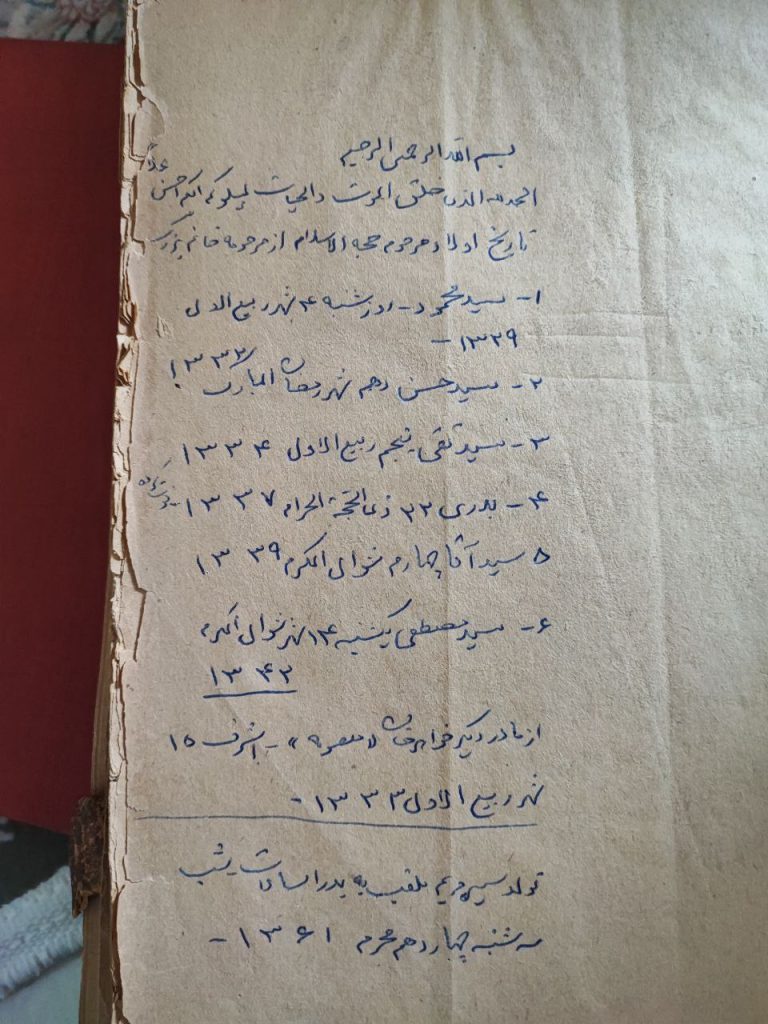 بسم الله الرحمن الرحیم
الحمد لله الذی خلق الموت والحیات لیبلوکم ایکم احسن عملاً
تاریخ اولاد مرحوم حجه الاسلام از مرحومه خانم بزرگ
۱- سید محمود - روز شنبه ۴ شهر ربیع الاول
۱۳۲۹ -
۲- سید حسن دهم شهر رمضان المبارک
۳- سید تقی پنجم ربیع الاول ۱۳۳۴
۴- بدری ۲۲ ذی الحجة الحرام ۱۳۳۷
۵ سید آقا چهارم شوال المکرم ۱۳۳۹
۶- سید مصطفی یکشنبه ۱۴ شهر شوال المکرم
۱۳۴۲
از مادر دیگر خواهرشان «معصومه» - اشرف ۱۵
شهر ربیع الاول ۱۳۳۳ -
تولد سیده مریم ملقب به بدر السادات شب
سه شنبه چهاردهم محرم ۱۳۶۱ -